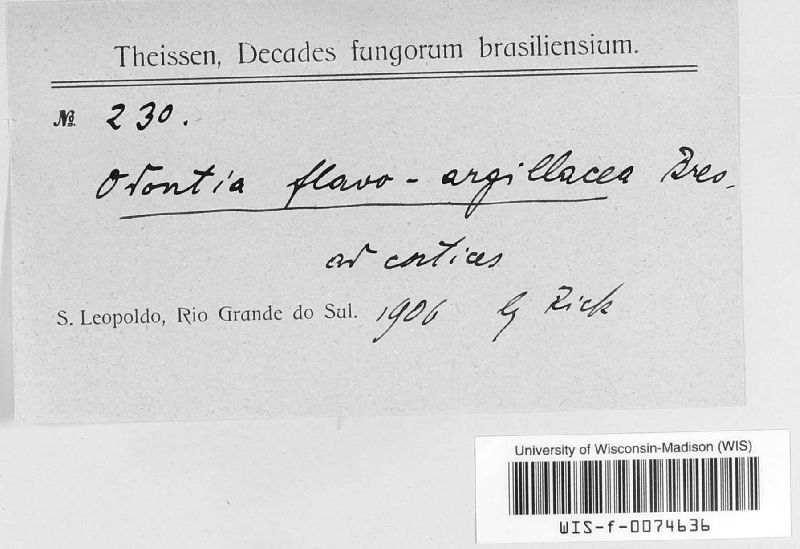 Theissen, Decades fungorum brasiliensium.
№ 230.
Odontia flavo-argillacea Bres.
ad cortices
S. Leopoldo, Rio Grande do Sul. 1906 lg Rick
University of Wisconsin-Madison (WIS)
WIS-f-0074636